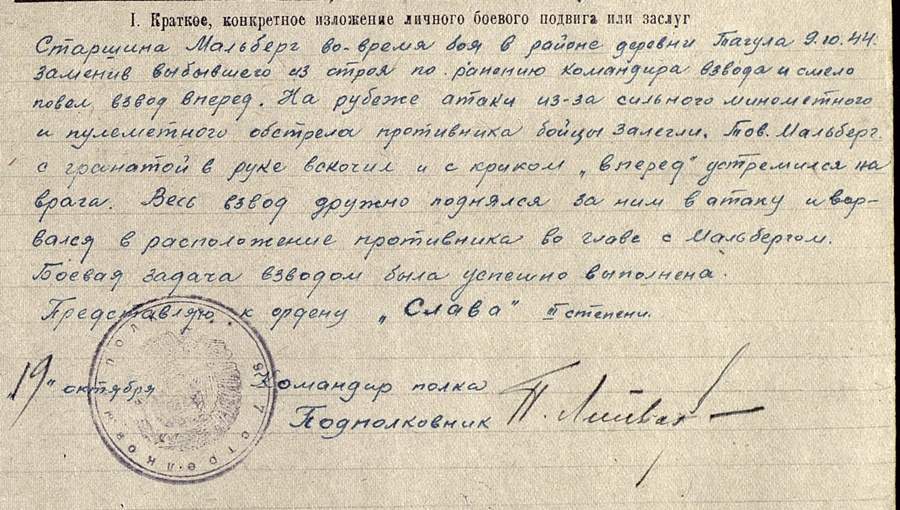 I. Краткое, конкретное изложение личного боевого подвига или заслуг
Старшина Мальберг во-время боя в районе деревни Тагула 9.10.44.
заменив выбывшего из строя по ранению командира взвода и смело
повел взвод вперед. На рубеже атаки из-за сильного минометного
и пулеметного обстрела противника бойцы залегли. Тов. Мальберг
с гранатой в руке вскочил и с криком „вперед" устремился на
врага. Весь взвод дружно поднялся за ним в атаку и вор-
вался в расположение противника во главе с Мальбергом.
Боевая задача взводом была успешно выполнена.
Представляю к ордену „Слава" III степени.
„19" октября
Командир полка
Подполковник